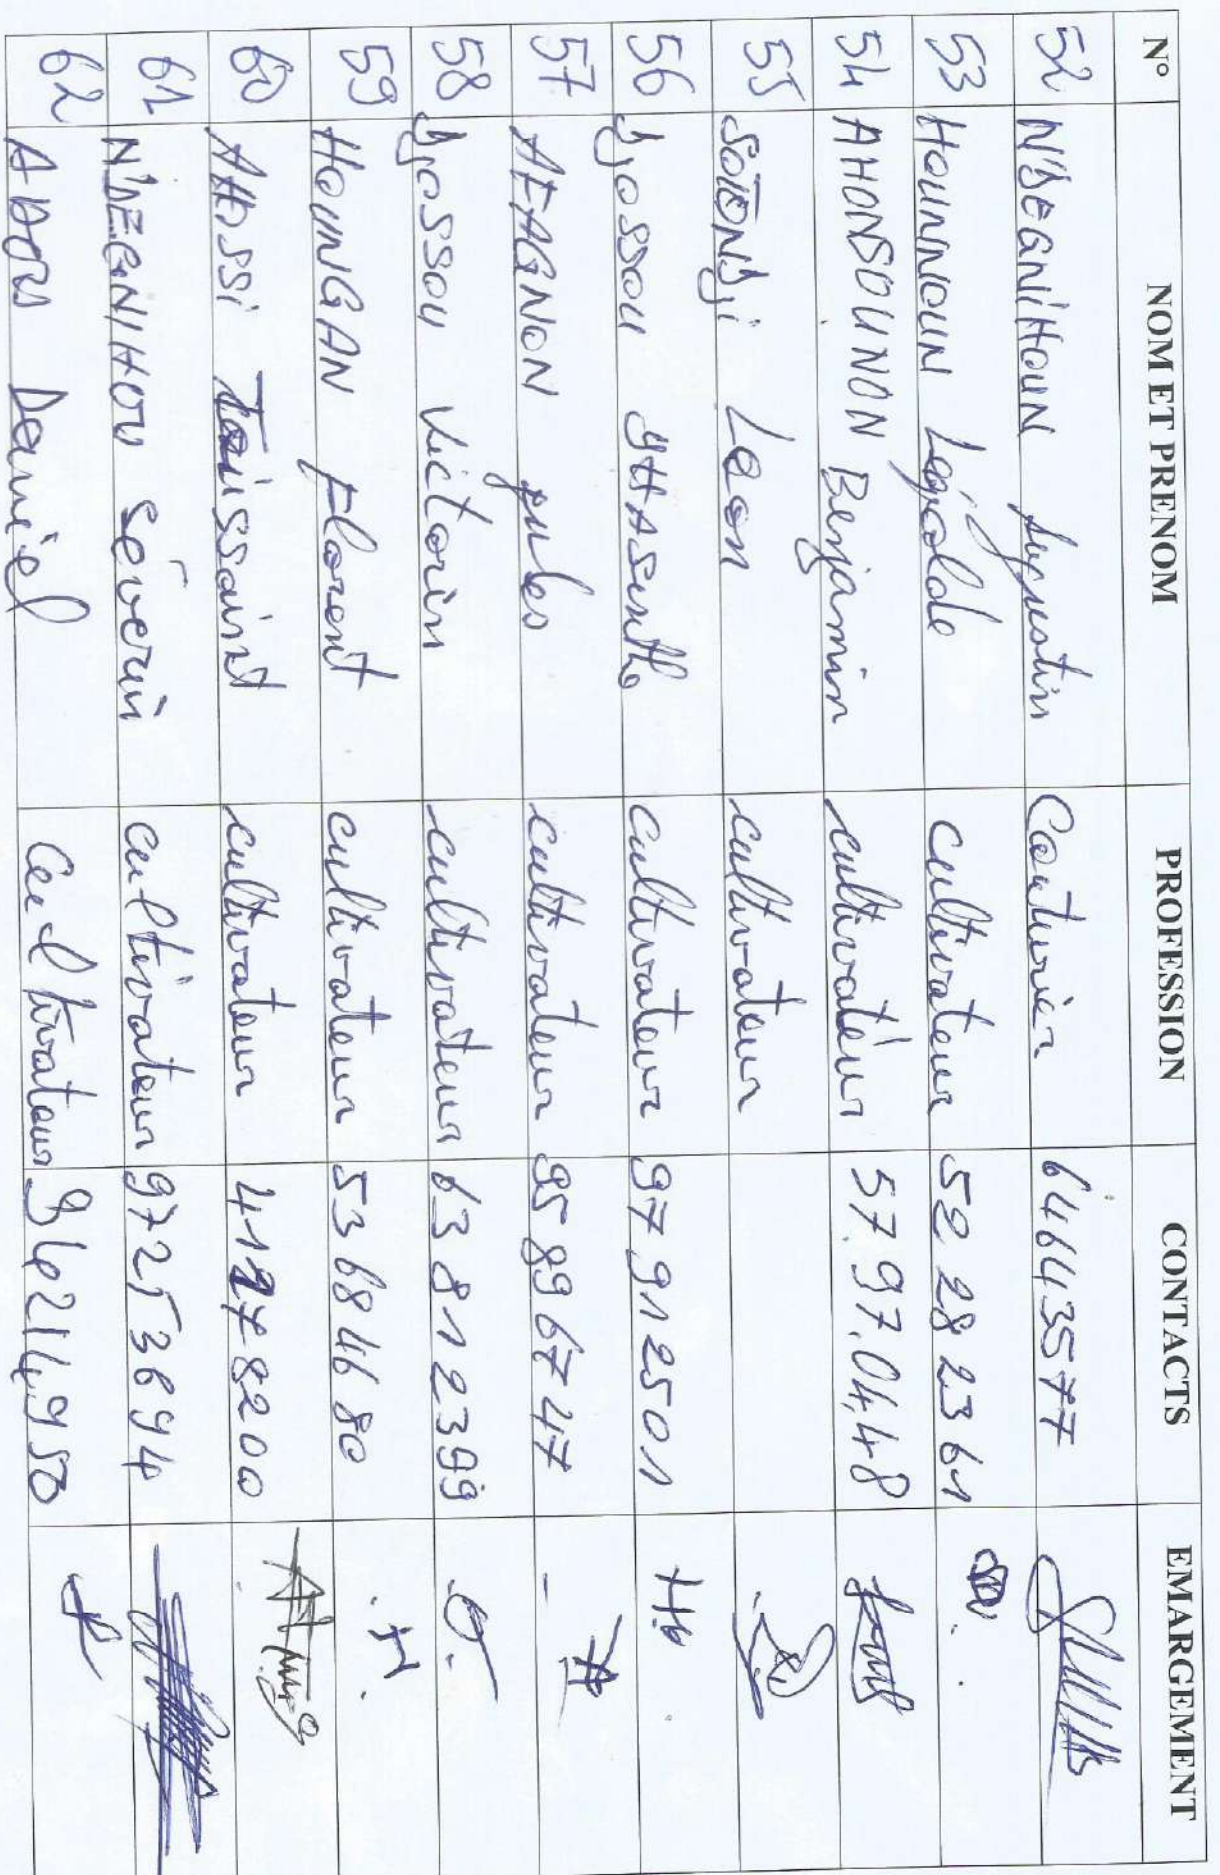 N° NOM ET PRENOM PROFESSION CONTACTS EMARGEMENT
52 N'DEGNIHOUN Augustin Couturier 64643577
53 HOUNNOUN Léopolde cultivateur 52 28 23 61
54 AHONSOUNON Benjamin cultivateur 57.97.04,48
55 Leon cultivateur
56 Djossou cultivateur 97 91 25 01
57 AFAGNON Jules cultivateur 95 89 67 47
58 Djossou Victorin cultivateur 63 81 23 99
59 HOUNGAN Florent cultivateur 53 68 46 80
60 AHOSSI Toussaint cultivateur
61 N'DEGNIHOU Séverin cultivateur 97253694
62 ADOU Daniel Cultivateur